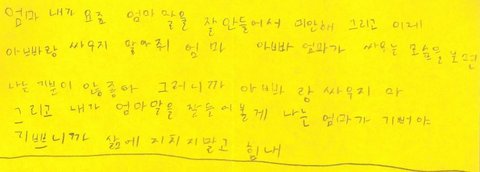 엄마 내가 요즘 엄마 말을 잘 안들어서 미안해 그리고 이제
아빠랑 싸우지 말아줘 엄마 아빠 엄마가 싸우는 모습을 보면
나는 기분이 안좋아 그러니까 아빠랑 싸우지 마
그리고 내가 엄마말을 잘 들어볼게 나는 엄마가 기뻐야
기쁘니까 삶에 지치지말고 힘내